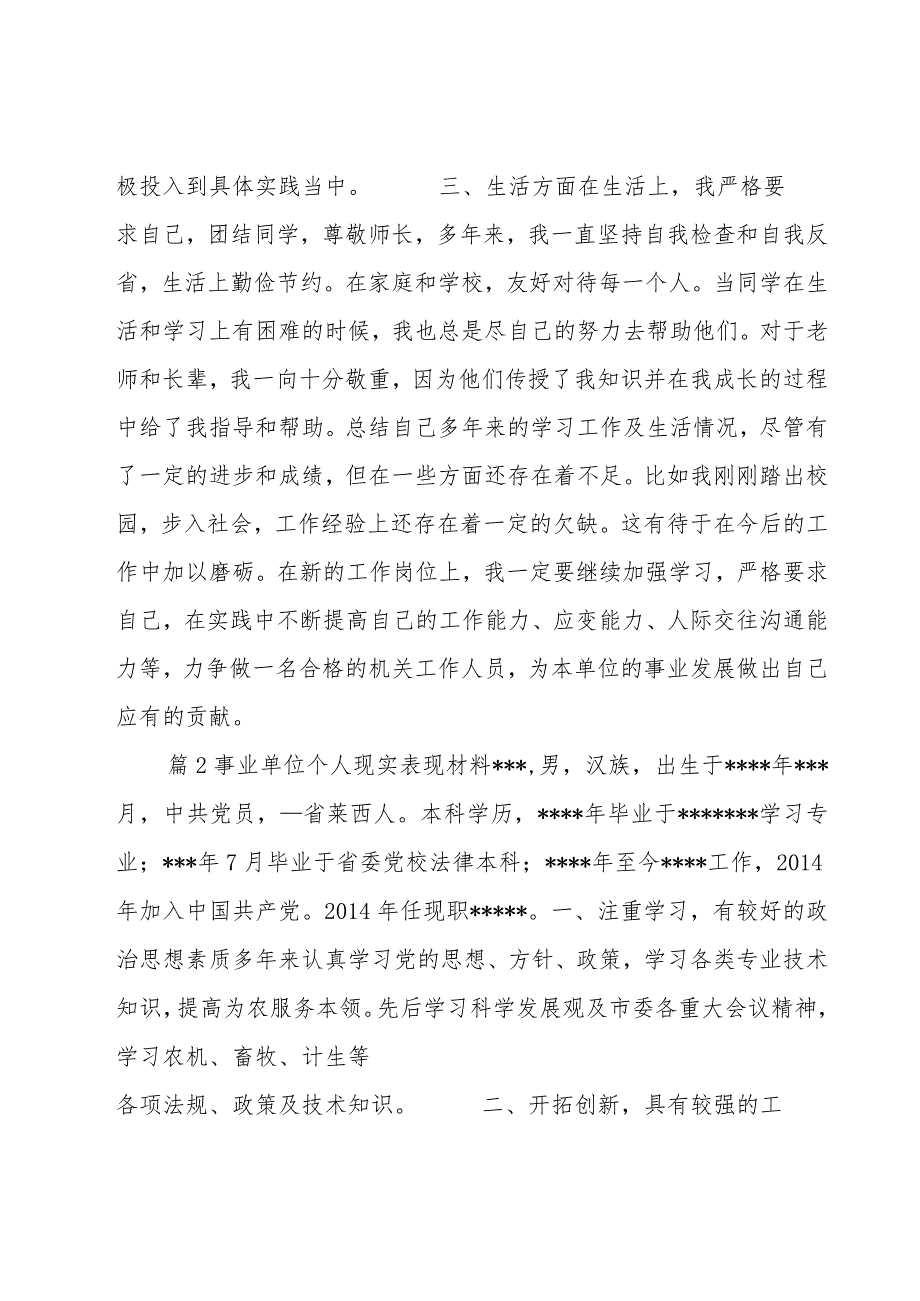 极投入到具体实践当中。 三、生活方面在生活上，我严格要
求自己，团结同学，尊敬师长，多年来，我一直坚持自我检查和自我反
省，生活上勤俭节约。在家庭和学校，友好对待每一个人。当同学在生
活和学习上有困难的时候，我也总是尽自己的努力去帮助他们。对于老
师和长辈，我一向十分敬重，因为他们传授了我知识并在我成长的过程
中给了我指导和帮助。总结自己多年来的学习工作及生活情况，尽管有
了一定的进步和成绩，但在一些方面还存在着不足。比如我刚刚踏出校
园，步入社会，工作经验上还存在着一定的欠缺。这有待于在今后的工
作中加以磨砺。在新的工作岗位上，我一定要继续加强学习，严格要求
自己，在实践中不断提高自己的工作能力、应变能力、人际交往沟通能
力等，力争做一名合格的机关工作人员，为本单位的事业发展做出自己
应有的贡献。
篇2事业单位个人现实表现材料***,男，汉族，出生于****年***
月，中共党员，—省莱西人。本科学历，****年毕业于*******学习专
业；***年7月毕业于省委党校法律本科；****年至今****工作，2014
年加入中国共产党。2014年任现职*****。一、注重学习，有较好的政
治思想素质多年来认真学习党的思想、方针、政策，学习各类专业技术
知识，提高为农服务本领。先后学习科学发展观及市委各重大会议精神，
学习农机、畜牧、计生等
各项法规、政策及技术知识。 二、开拓创新，具有较强的工